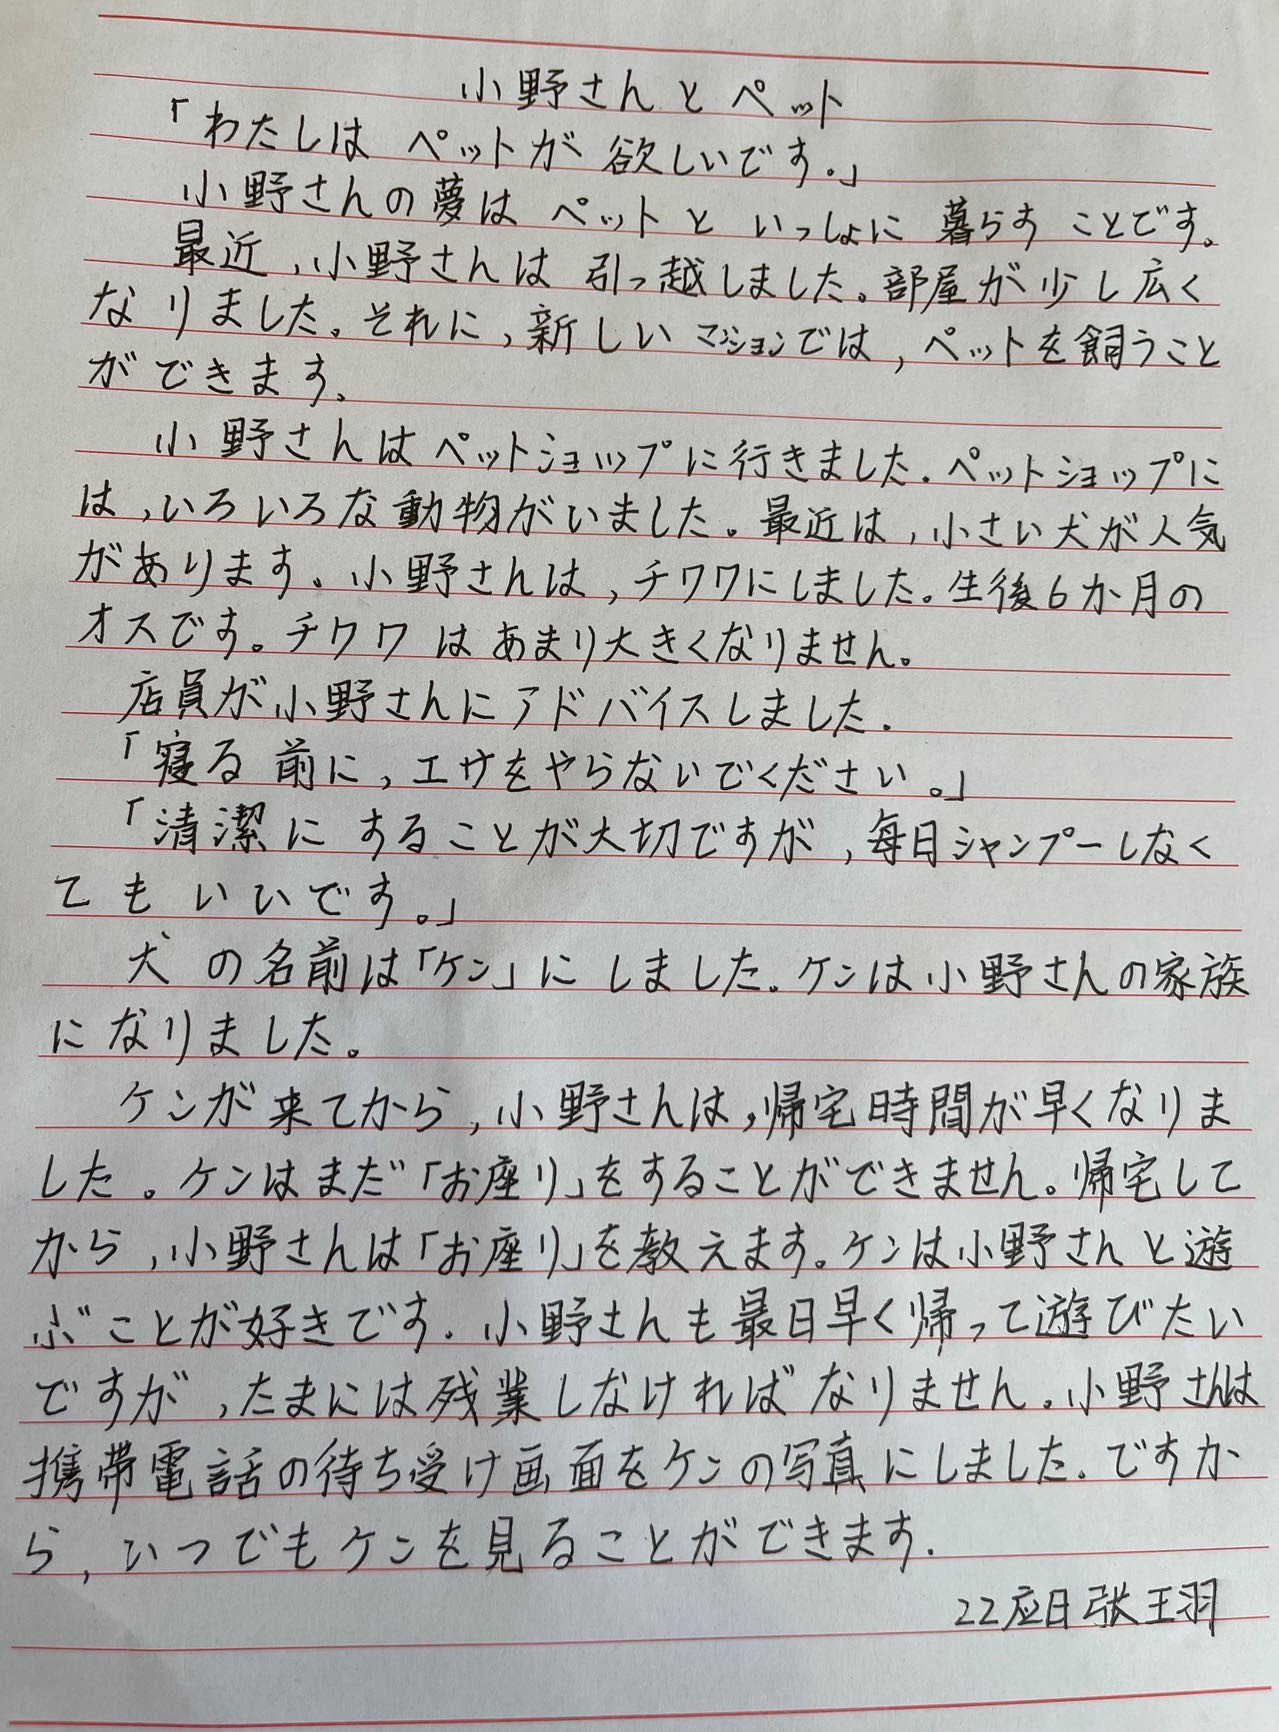 小野さんとペット
「わたしは ペットが 欲しいです。」
小野さんの夢は ペットと いっしょに 暮らす ことです。
最近,小野さんは 引っ越しました。部屋が少し広く
なりました。それに,新しい マンションでは,ペットを飼うこと
ができます。
小野さんはペットショップに行きました.ペットショップに
は,いろいろな動物がいました。最近は,小さい犬が人気
があります。小野さんは,チワワにしました。生後6か月の
オスです。チワワ はあまり大きくなりません。
店員が小野さんにアドバイスしました.
「寝る 前に,エサをやらないでください。」
「清潔に することが大切ですが,毎日シャンプーしなく
てもいいです。」
犬 の名前は「ケン」に しました.ケンは小野さんの家族
になりました。
ケンが来てから,小野さんは,帰宅時間が早くなりま
した。ケンはまだ「お座り」をすることができません。帰宅して
から,小野さんは「お座り」を教えます。ケンは小野さんと遊
ぶことが好きです.小野さんも最日早く帰って遊びたい
ですが,たまには残業しなければなりません.小野さんは
携帯電話の待ち受け画面をケンの写真にしました.ですか
ら,いつでもケンを見ることができます.
22应日张王羽